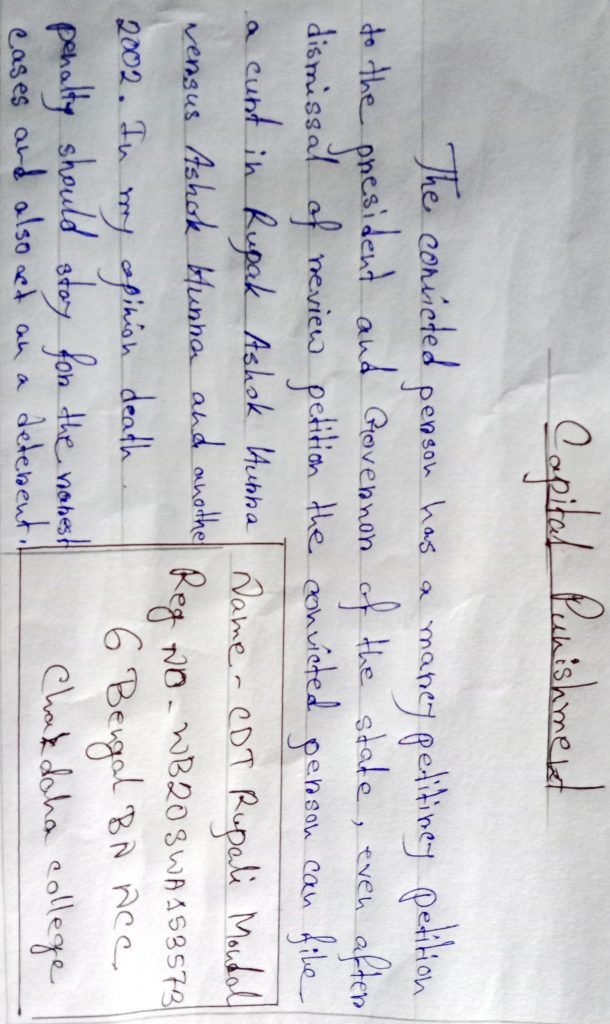 Capital Punishment
The convicted person has a mancy petitiney petition
to the president and Governon of the state, even after
dismissal of neview petition the convicted person can file
a cunt in Rupak Ashok Hunna
versus Ashok Hunna and anothe
2002. In my opinion death
penalty should stay fon the nanest
cases and also act an a detenent.
Name - CDT Rupali Mondal
Reg NO - WB20SWA153573
6 Bengal BN NCC
Chakdaha college